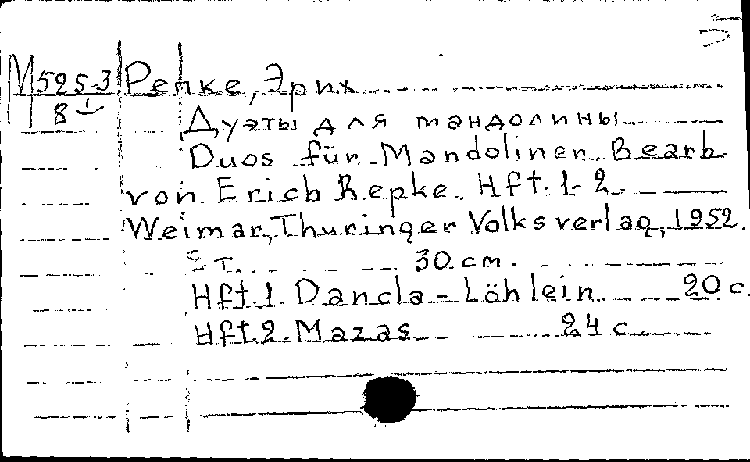 М 525-3 Репке, Эрих
8
Дуэты для мандолины
Duos für Mandolinen. Bearb.
von Erich Repke. Hft. 1-2.
Weimar, Thuringer Volksverlag, 1952.
2 т. 30 cm.
Hft. 1. Dancla - Löhlein. 20 c.
Hft. 2. Mazas. 24 c.